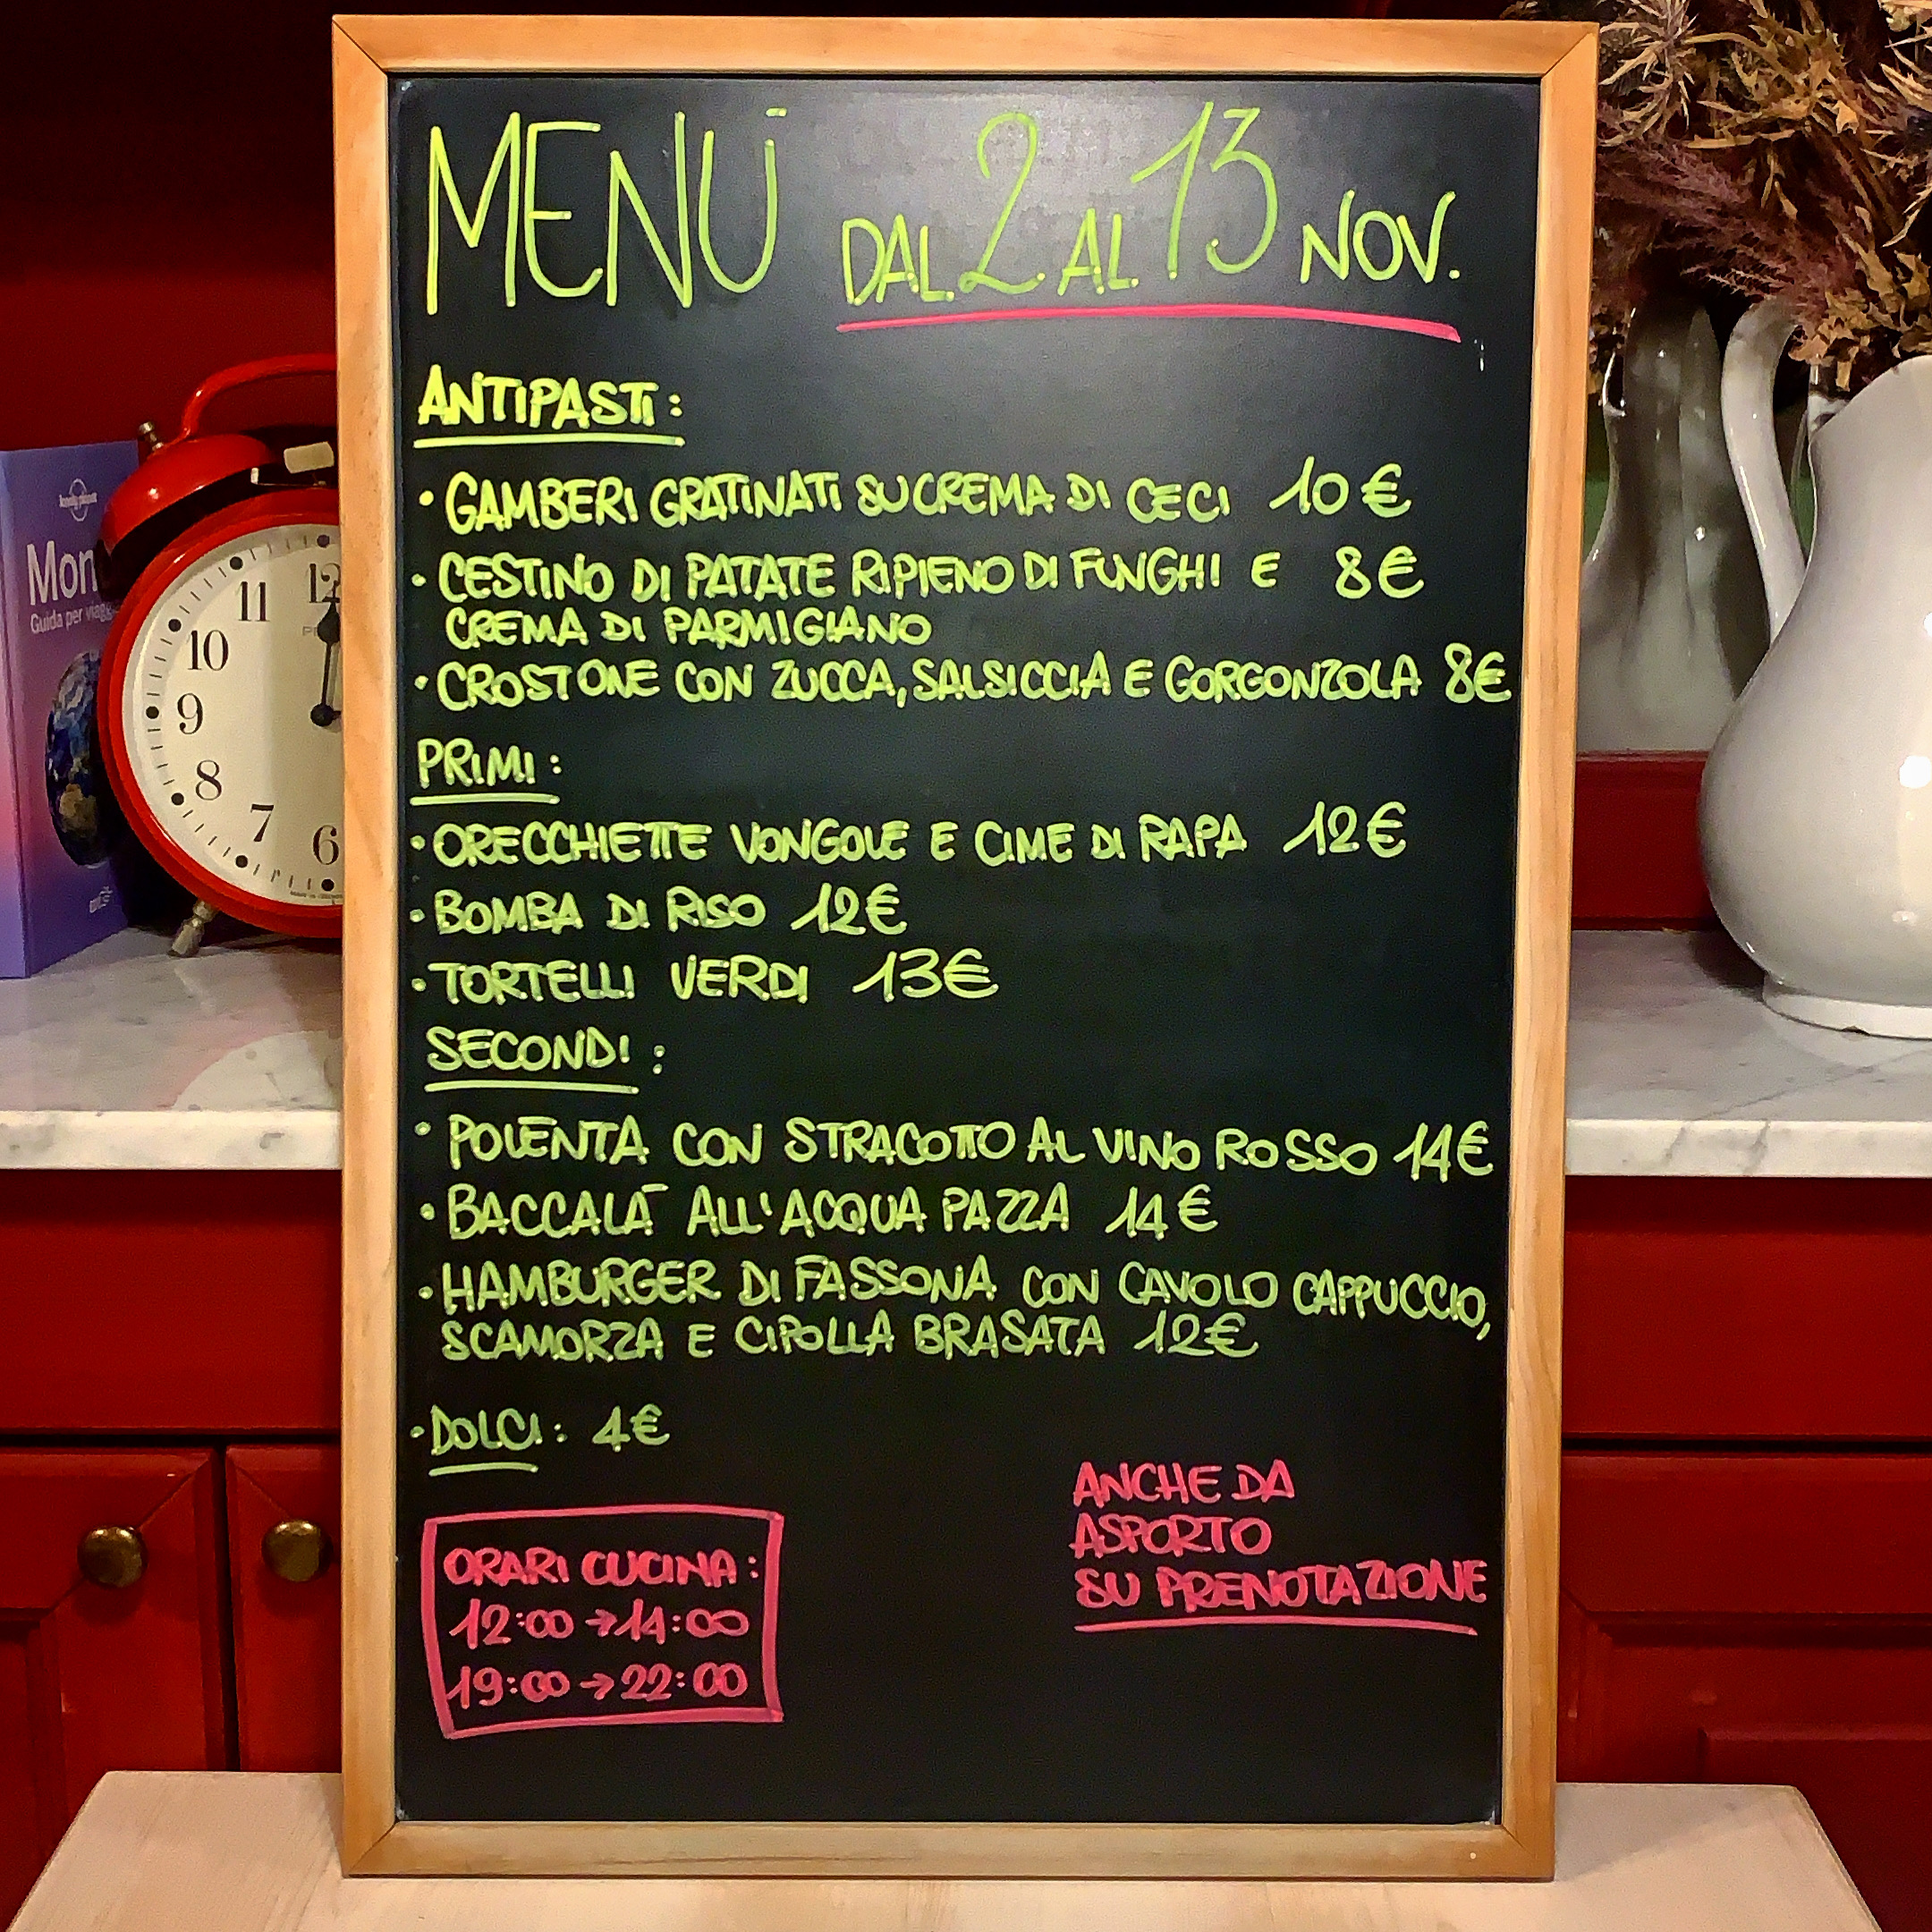 MENÙ DAL 2 AL 13 NOV.
ANTIPASTI:
• GAMBERI GRATINATI SU CREMA DI CECI 10€
• CESTINO DI PATATE RIPIENO DI FUNGHI E 8€
CREMA DI PARMIGIANO
• CROSTONE CON ZUCCA, SALSICCIA E GORGONZOLA 8€
PRIMI:
• ORECCHIETTE VONGOLE E CIME DI RAPA 12€
• BOMBA DI RISO 12€
• TORTELLI VERDI 13€
SECONDI:
• POLENTA CON STRACOTTO AL VINO ROSSO 14€
• BACCALÀ ALL'ACQUA PAZZA 14€
• HAMBURGER DI FASSONA CON CAVOLO CAPPUCCIO,
SCAMORZA E CIPOLLA BRASATA 12€
• DOLCI: 4€
ANCHE DA
ASPORTO
SU PRENOTAZIONE
ORARI CUCINA:
12:00 → 14:00
19:00 → 22:00
lonely planet
Mon
Guida per viagg
12
11
10
9
8
7
6